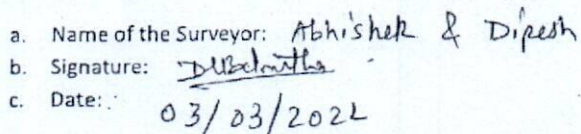 a. Name of the Surveyor: Abhishek & Dipesh
b. Signature:
c. Date: 03/03/2022